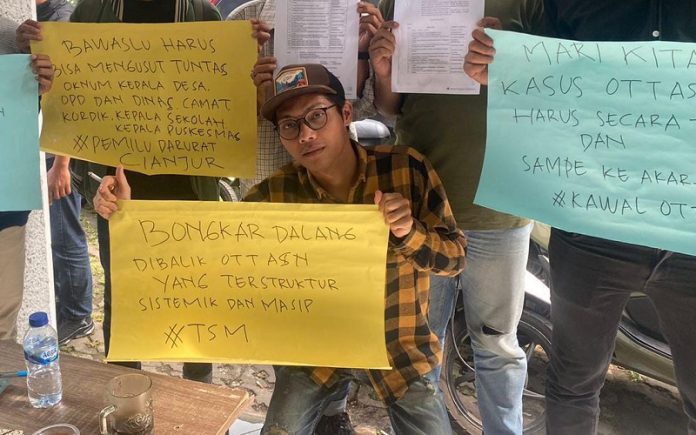 BAWASLU HARUS
BISA MENGUSUT TUNTAS
OKNUM KEPALA DESA,
OPD DAN DINAS CAMAT
KORDIK, KEPALA SEKOLAH
KEPALA PUSKESMAS
#PEMILU DARURAT
CIANJUR
BONGKAR DALANG
DIBALIK OTT ASN
YANG TERSTRUKTUR
SISTEMIK DAN MASIP
#TSM
MARI KITA
KASUS OTT AS
HARUS SECARA
DAN
SAMPE KE AKAR
#KAWAL OTT